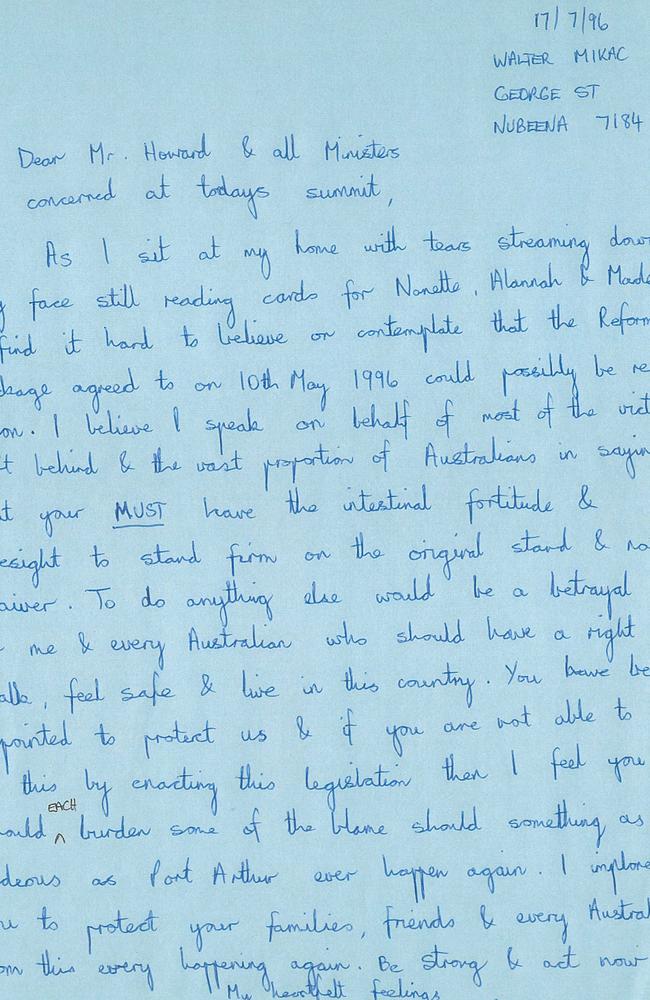 17/7/96
WALTER MIKAC
GEORGE ST
NUBEENA 7184
Dear Mr. Howard & all Ministers
concerned at todays summit,
As I sit at my home with tears streaming dow
y face still reading cards for Nanette, Alannah & Made
find it hard to believe or contemplate that the Reform
kage agreed to on 10th May 1996 could possibly be re
on. I believe I speak on behalf of most of the vict
t behind & the vast proportion of Australians in sayin
at your MUST have the intestinal fortitude &
esight to stand firm on the original stand & no
aiver. To do anything else would be a betrayal
me & every Australian who should have a right
alk, feel safe & live in this country. You have be
pointed to protect us & if you are not able to
this by enacting this legislation then I feel you
EACH
ould ^ burden some of the blame should something as
deous as Port Arthur ever happen again. I implore
u to protect your families, friends & every Austral
om this every happening again. Be strong & act now
My heartfelt feelings